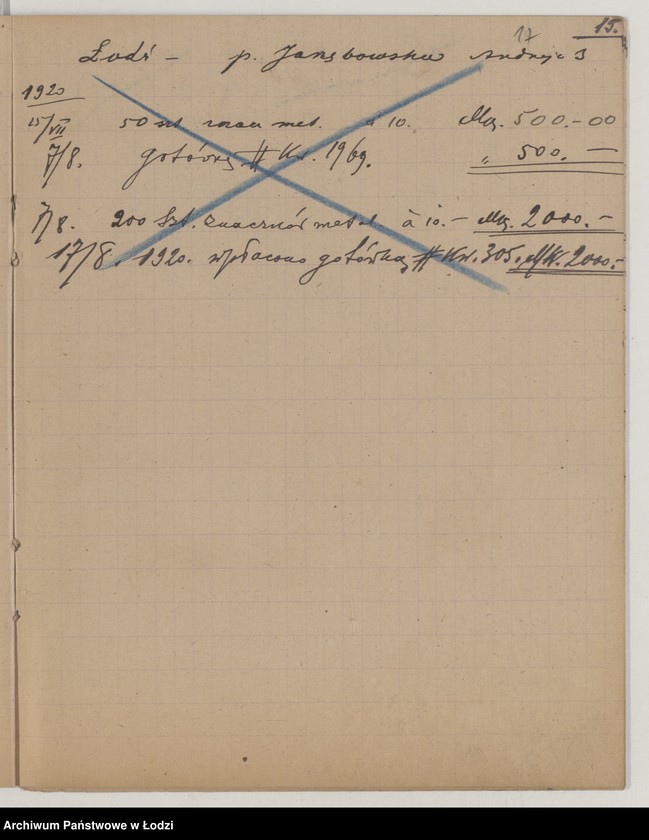 17 15.
Łódź – p. Janębowska Andrzeja 3
1920
15/VII 50 szt znacz met. à 10. Mg. 500.-00
7/8. gotówką # Kw. 1969. „ 500. —
7/8. 200 Szt. znaczków metal à 10.– Mg. 2000.–
17/8. 1920. wpłacono gotówką # Kw. 305. MK. 2000.-
Archiwum Państwowe w Łodzi